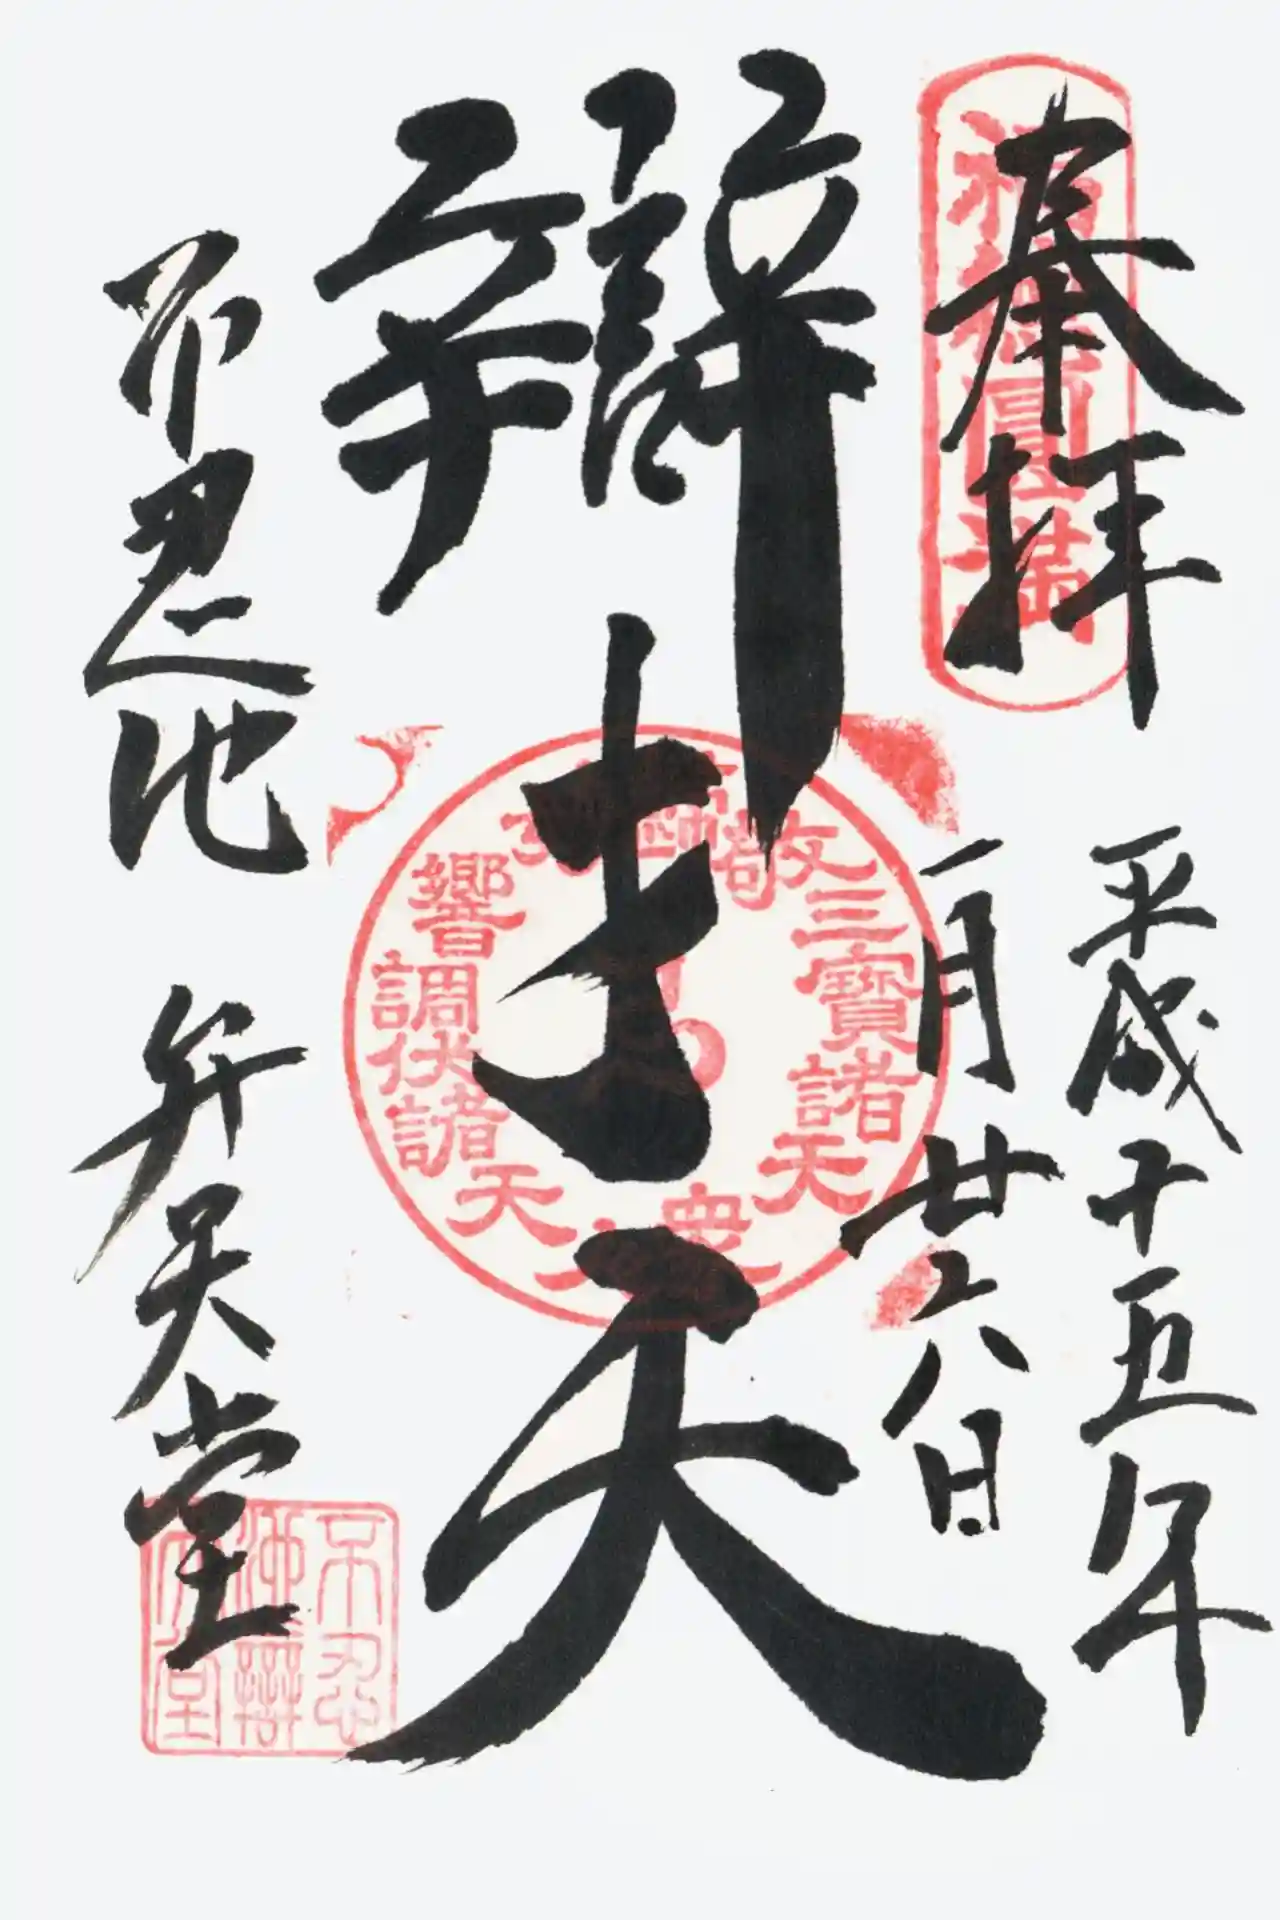 奉拝
平成十五年
一月廿六日
福德圓滿
辯才天
三寶諸天衆
響調伏諸天
不忍池 弁天堂
不忍池辯天堂